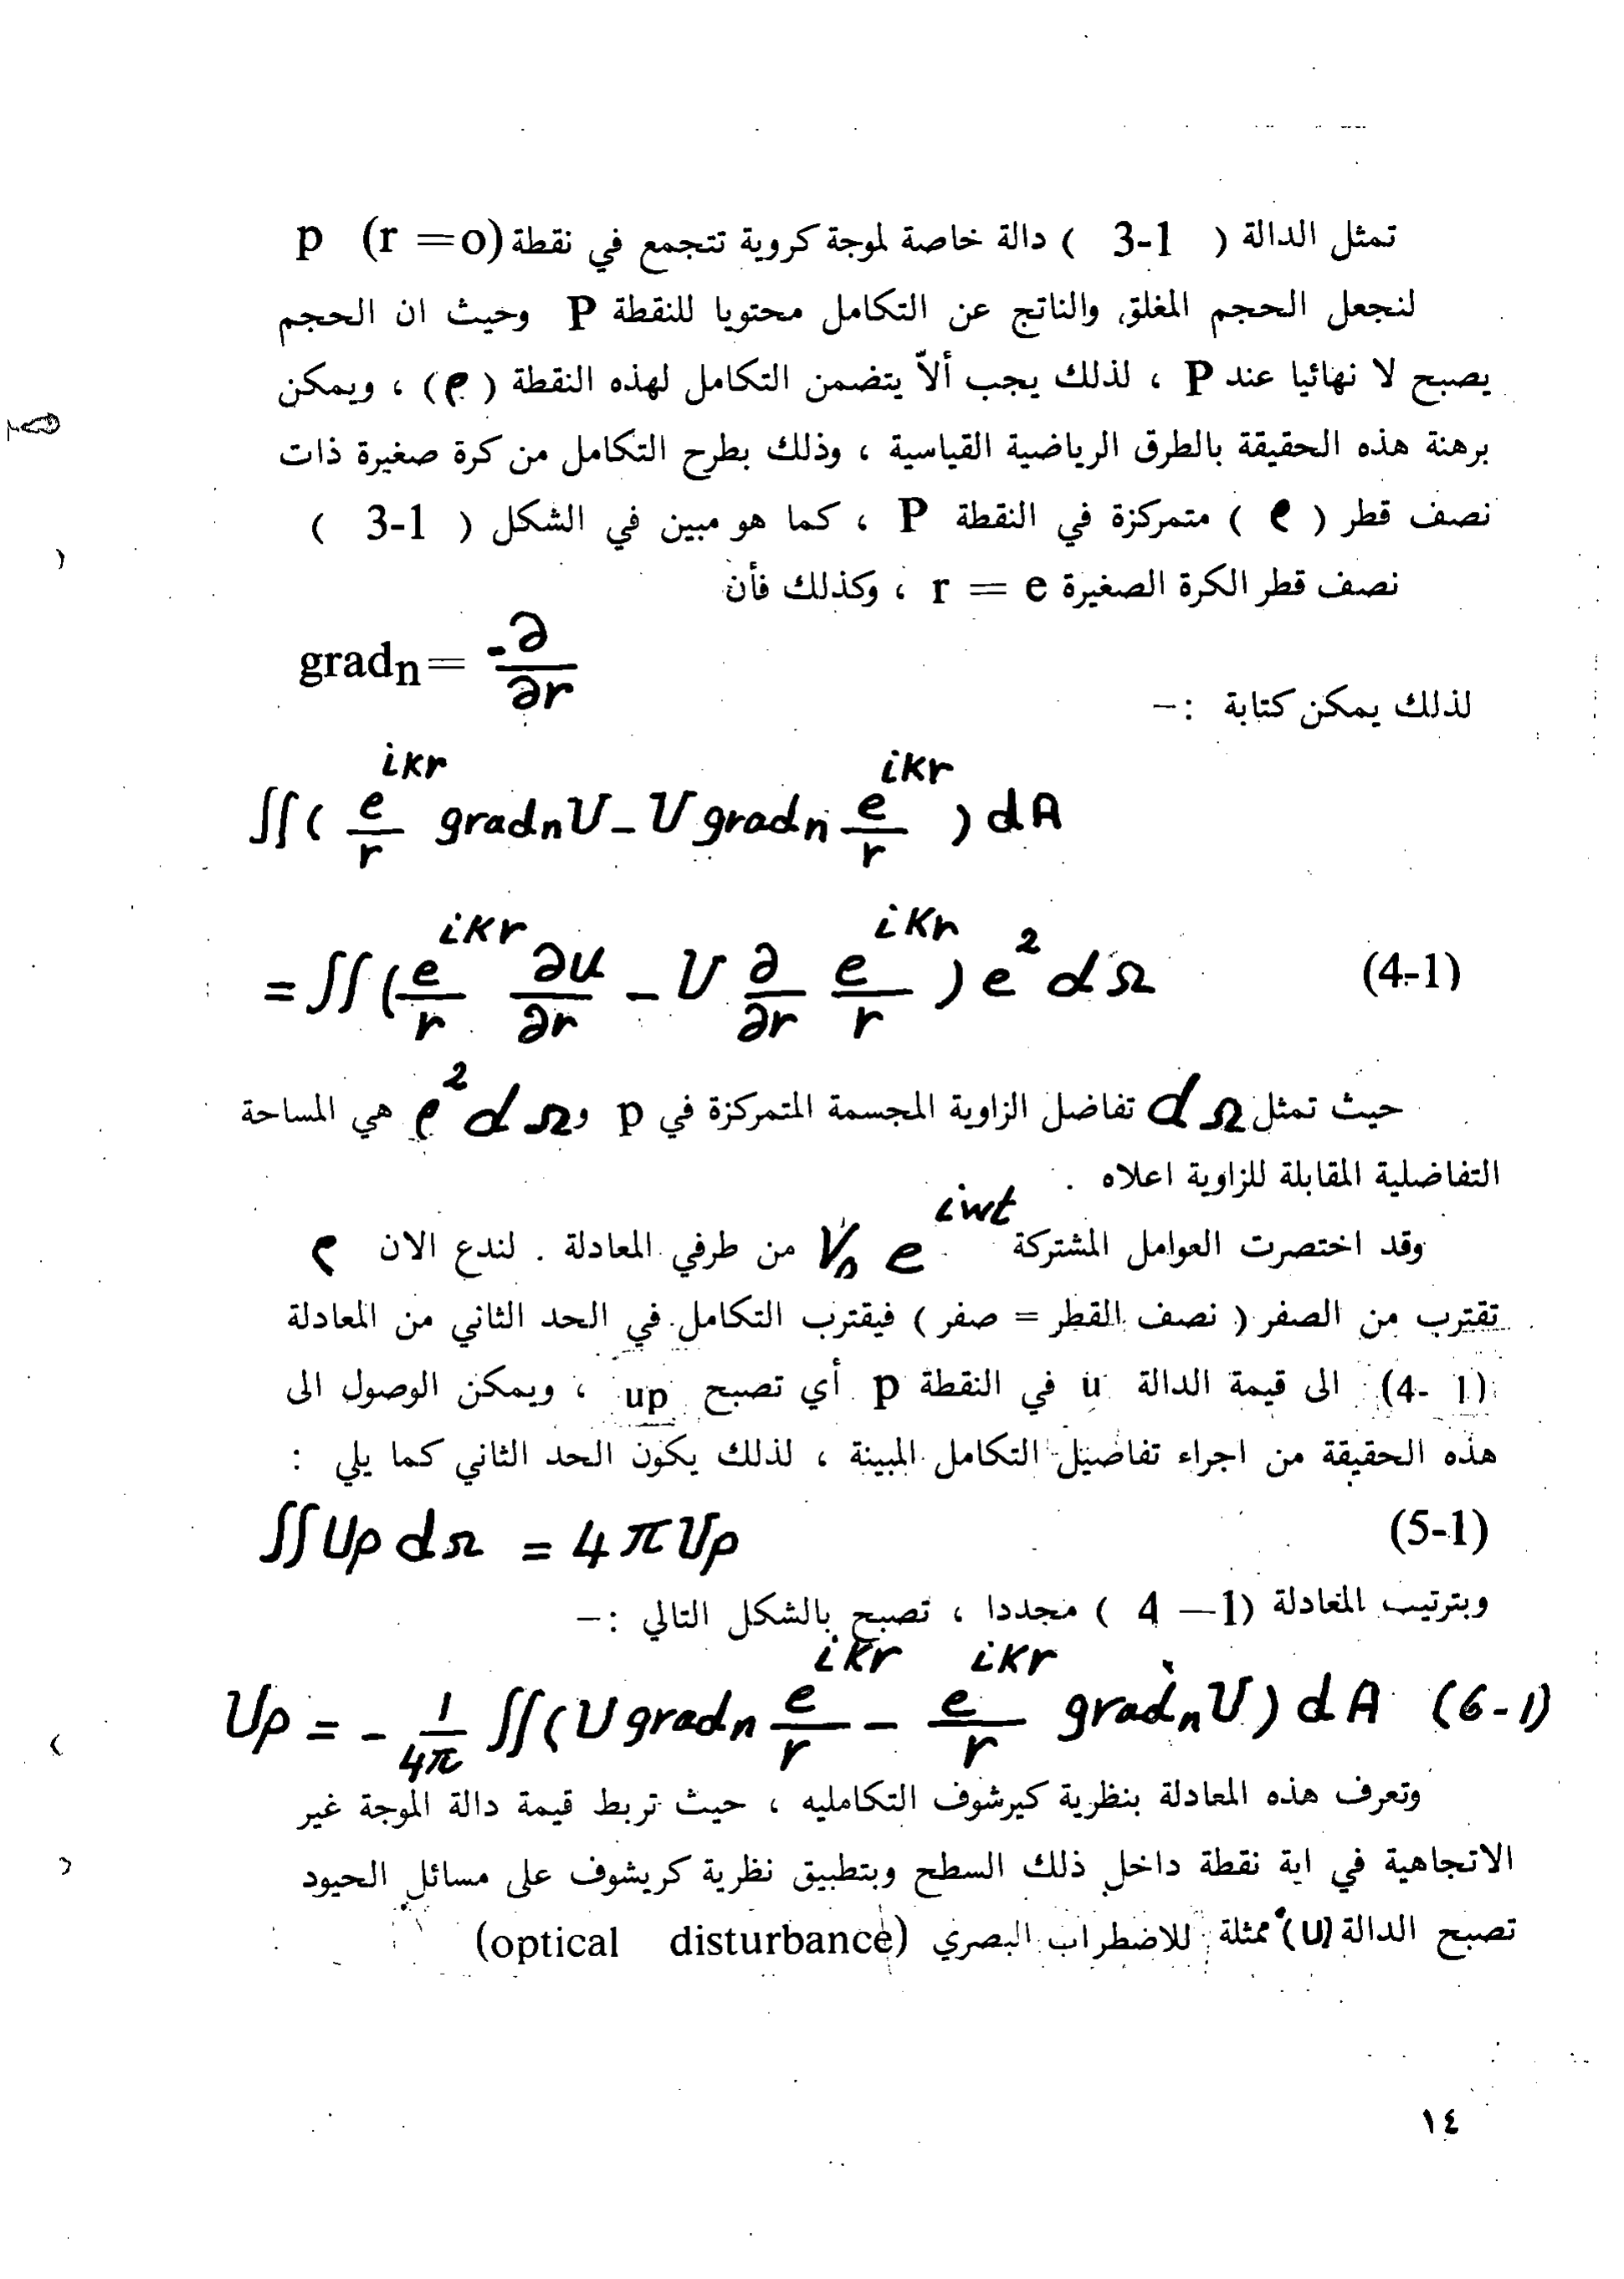 تمثل الدالة ( 3-1 ) دالة خاصة لموجة كروية تتجمع في نقطة p (r =o)
لنجعل الحجم المغلق والناتج عن التكامل محتويا للنقطة P وحيث ان الحجم
يصبح لا نهائيا عند P ، لذلك يجب ألاّ يتضمن التكامل لهذه النقطة (ρ) ، ويمكن
برهنة هذه الحقيقة بالطرق الرياضية القياسية ، وذلك بطرح التكامل من كرة صغيرة ذات
نصف قطر ( ρ ) متمركزة في النقطة P ، كما هو مبين في الشكل ( 3-1 )
نصف قطر الكرة الصغيرة r = e ، وكذلك فأن
gradₙ = -∂/∂r
لذلك يمكن كتابة :–
∫∫( e^{ikr}/r gradₙU – U gradₙ e^{ikr}/r ) dA
= ∫∫( e^{ikr}/r ∂u/∂r – U ∂/∂r e^{ikr}/r ) e² dΩ (4-1)
حيث تمثل dΩ تفاضل الزاوية المجسمة المتمركزة في p و ρ² dΩ هي المساحة
التفاضلية المقابلة للزاوية اعلاه .
وقد اختصرت العوامل المشتركة V₀ e^{iwt} من طرفي المعادلة . لندع الان ρ
تقترب من الصفر ( نصف القطر = صفر ) فيقترب التكامل في الحد الثاني من المعادلة
(4- 1) الى قيمة الدالة u في النقطة p أي تصبح up ، ويمكن الوصول الى
هذه الحقيقة من اجراء تفاصيل التكامل المبينة ، لذلك يكون الحد الثاني كما يلي :
∫∫ Up dΩ = 4πUp (5-1)
وبترتيب المعادلة (1— 4 ) مجددا ، تصبح بالشكل التالي :–
Up = – 1/4π ∫∫(U gradₙ e^{ikr}/r – e^{ikr}/r gradₙU) dA (6-1)
وتعرف هذه المعادلة بنظرية كيرشوف التكامليه ، حيث تربط قيمة دالة الموجة غير
الاتجاهية في اية نقطة داخل ذلك السطح وبتطبيق نظرية كريشوف على مسائل الحيود
تصبح الدالة (U) ممثلة للاضطراب البصري (optical disturbance)
١٤